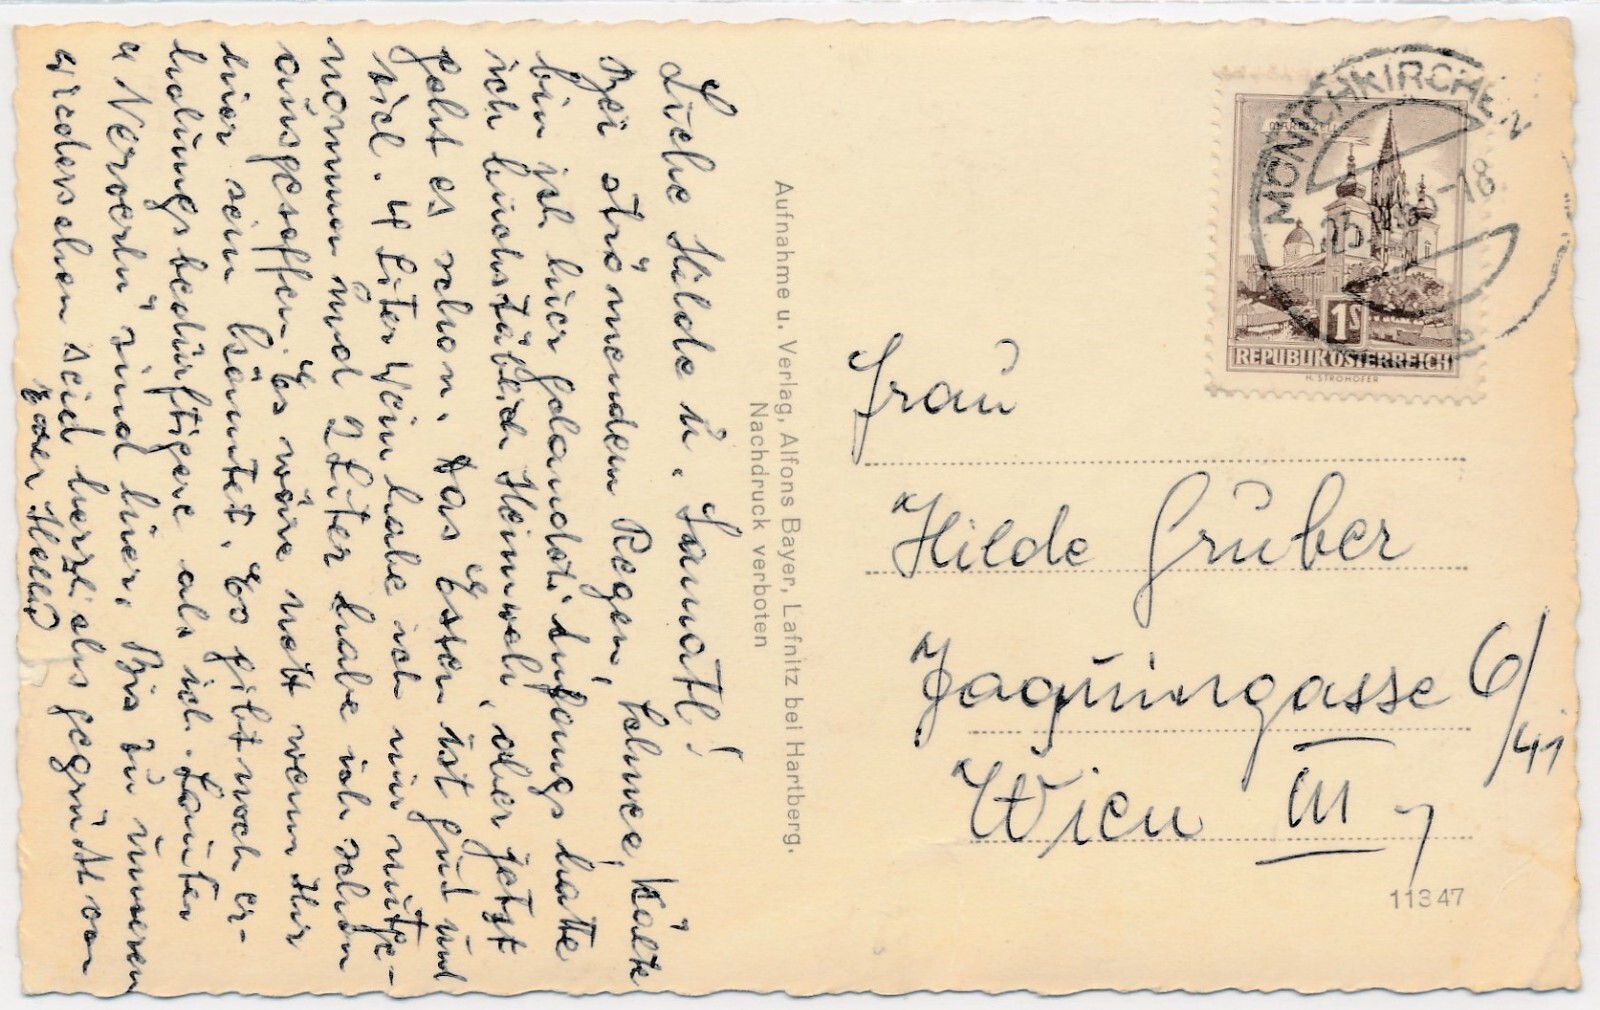 Liebe Hilde u. Hannerl!
Bei strömenden Regen, Schnee, Kälte
bin ich hier gelandet. Anfangs hatte
ich buchstäblich Heimweh, aber jetzt
geht es schon. Das Essen ist gut und
viel. 4 Liter Wein habe ich mir mitge-
nommen und 2 Liter habe ich schon
ausgesoffen. Es wäre nett wenn Ihr
hier sein könntet. Es gibt noch er-
holungsbedürftigere als ich. Lauter
" Nerverln" sind hier. Bis zu unseren
Wiedersehen seid herzlichs gegrüßt von
Eurer
Aufnahme u. Verlag, Alfons Bayer, Lafnitz bei Hartberg.
Nachdruck verboten
MÖNICHKIRCHEN
-18
MARIAZELL
1S
REPUBLIK ÖSTERREICH
H. STROHOFER
Frau
Hilde Gruber
Jaquingasse 6/41
Wien III
11347